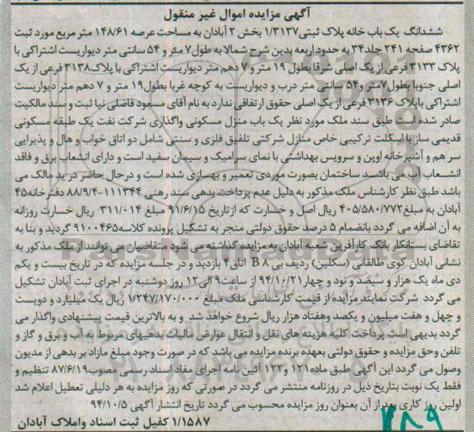 آگهی مزایده اموال غیر منقول
ششدانگ یک باب خانه پلاک ثبتی۱/۳۱۳۷ بخش ۲ آبادان به مساحت عرصه ۱۴۸/۶۱ متر مربع مورد ثبت
۴۳۶۲ صفحه ۲۴۱ جلد۳۴ به حدوداربعه بدین شرح شمالا به طول۷ متر و ۵۴ سانتی متر دیواریست اشتراکی با
پلاک ۳۱۳۳ فرعی از یک اصلی شرقا بطول ۱۹ متر و ۷ دهم متر دیواریست اشتراکی با پلاک۳۱۳۸ فرعی از یک
اصلی جنوبا بطول۷متر و۵۴ سانتی متر درب و دیواریست به کوچه غربا بطول۱۹ متر و ۷ دهم متر دیواریست
اشتراکی با پلاک ۳۱۳۶ فرعی از یک اصلی حقوق ارتفاقی ندارد به نام آقای مسعود فاضلی نیا ثبت و سند مالکیت
صادر شده است طبق سند ملک مورد نظر یک باب منزل مسکونی واگذاری شرکت نفت یک طبقه مسکونی
قدیمی ساز با اسکلت ترکیبی خاص منازل شرکتی تلفیق فلزی و سنتی شامل دو اتاق خواب و هال و پذیرایی
سر هم و آشپزخانه اوپن و سرویس بهداشتی با نمای سرامیک و سیمان سفید است و دارای انشعاب برق و فاقد
انشعاب آب می باشد ساختمان بصورت موردی تعمیر و بهسازی شده است و درحال حاضر در ید مالک می
باشد طبق نظر کارشناس ملک مذکور به دلیل عدم پرداخت بدهی سند رهنی ۱۱۱۳۴۴-۸۸/۹/۴ دفترخانه۴۵
آبادان به مبلغ۴۰۵/۵۸۰/۷۷۲ ریال اصل و خسارت که ازتاریخ ۹۱/۶/۱۵ مبلغ ۳۱۱/۰۱۴ ریال خسارت روزانه
به آن اضافه می گردد بانضمام ۵ درصد حقوق دولتی منجر به تشکیل پرونده کلاسه۹۱۰۰۴۶۵ گردید و بنا به
تقاضای بستانکار بانک کارآفرین شعبه آبادان به مزایده گذاشته می شود متقاضیان می توانند از ملک مذکور به
نشانی آبادان کوی طالقانی (سکلین) ردیف BA اتاق۴ بازدید و در جلسه مزایده که در تاریخ بیست و یکم
دی ماه یک هزار و سیصد و نود و چهار۹۴/۱۰/۲۱ از ساعت۹ الی۱۲ روز دوشنبه در اجرای ثبت آبادان تشکیل
می گردد شرکت نمایند مزایده از قیمت کارشناسی ملک مبلغ ۱/۲۴۷/۱۷۰/۰۰۰ ریال یک میلیارد و دویست
و چهل و هفت میلیون و یکصد وهفتاد هزار ریال شروع خواهد شد و به بالاترین قیمت پیشنهادی واگذار می
گردد بدیهی است پرداخت کلیه هزینه های نقل و انتقال عوارض مالیات بدهیهای مربوط به آب و برق و گاز و
تلفن وحق مزایده و حقوق دولتی بعهده برنده مزایده می باشد که در صورت وجود مبلغ مازاد بر بدهی از مدیون
وصول می گردد این آگهی طبق ماده ۱۲۱ و ۱۲۲ آئین نامه اجرای مفاد اسناد رسمی مصوب۸۷/۶/۱۹ تنظیم و
فقط یک نوبت بتاریخ ذیل در روزنامه منتشر می گردد در صورتی که روز مزایده به هر دلیلی تعطیل اعلام شد
اولین روز کاری بعد از آن بعنوان روز مزایده محسوب می گردد تاریخ انتشار آگهی ۹۴/۱۰/۵
۱/۱۵۸۷ کفیل ثبت اسناد واملاک آبادان
۷۸۹